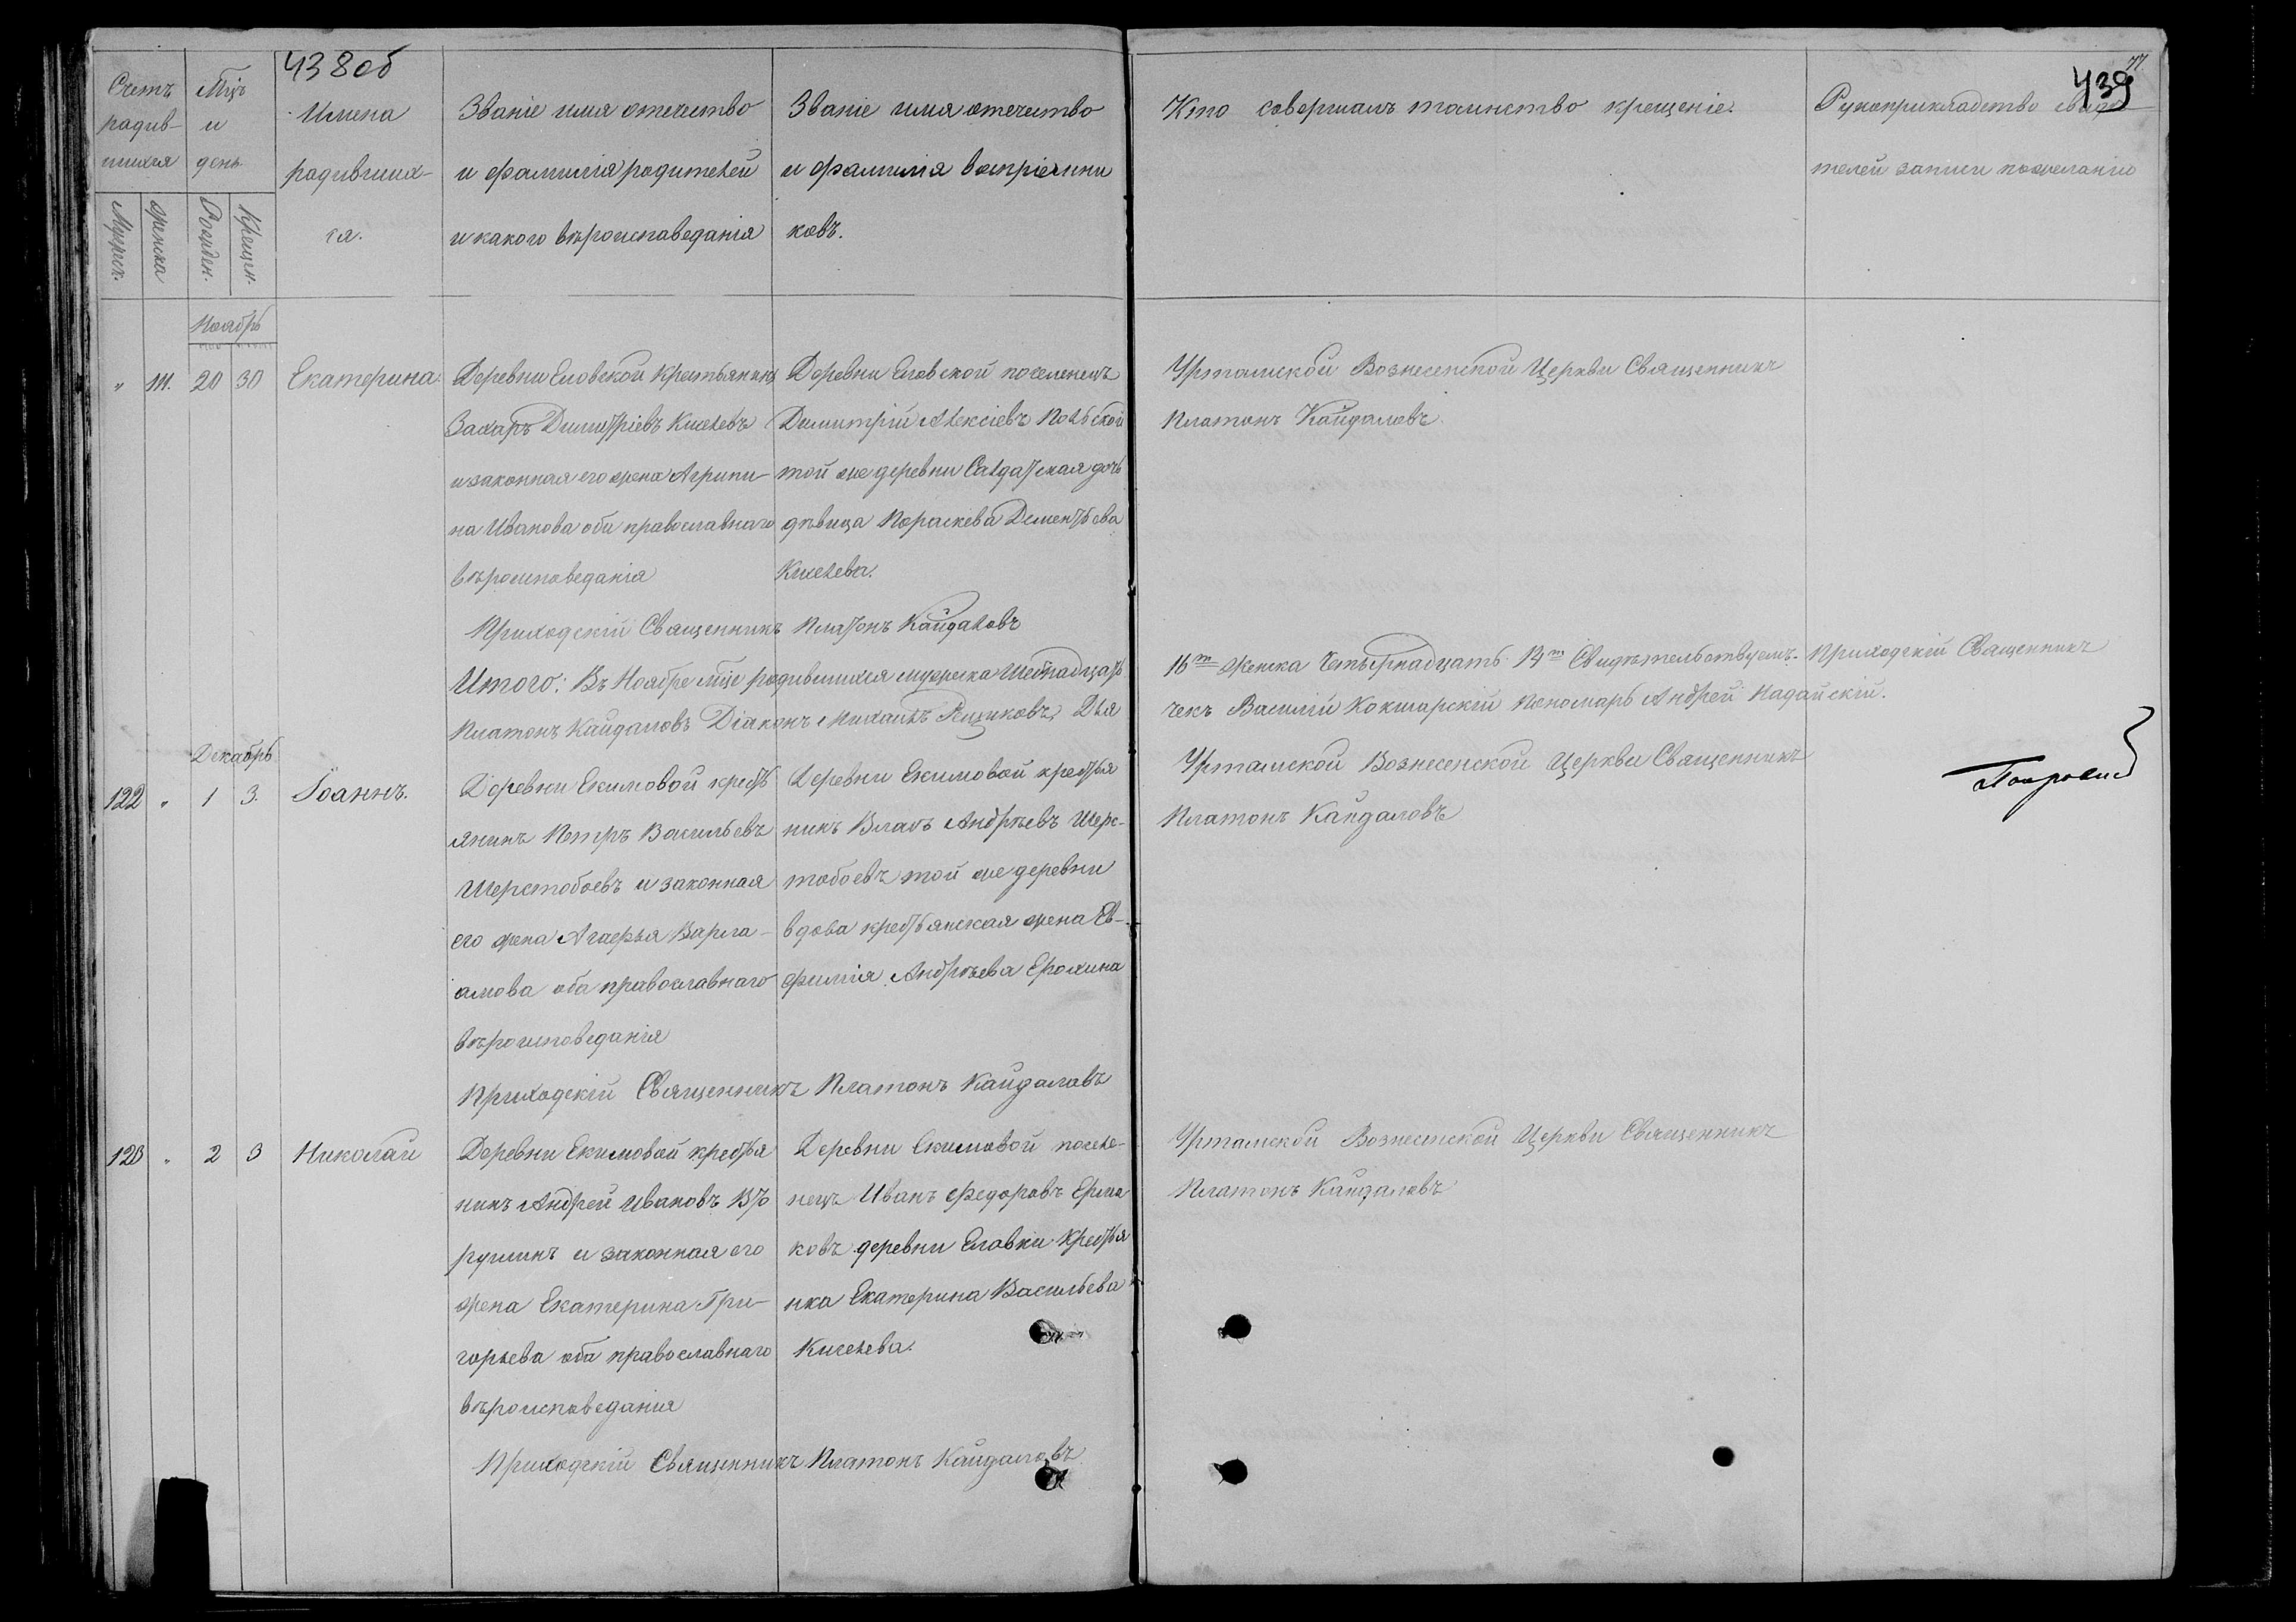 438об
439
77
Счетъ
родив-
шихся
Мужеск.
женска
Мцъ
и
день.
Рожден.
Крещен.
Имена
родивших-
ся.
Званіе имя отечество
и фамилія родителей
и какого вѣроисповеданія
Званіе имя отечество
и фамилія воспріемни
ковъ.
Кто совершалъ таинство крещеніе.
Рукоприкладство свидѣ
телей записи пожеланію
Ноябрь
" 111. 20 30 Екатерина.
Деревни Еловской Крестьянинъ
Захаръ Димитріевъ Киселевъ
и законная его жена Агрипи-
на Иванова оба православнаго
вѣроисповеданія
Деревни Еловской поселенецъ
Димитрій Алексіевъ Польской
той же деревни Салдатская дочь
дѣвица Пораскева Дементьева
Киселева.
Уртамской Вознесенской Церкви Священникъ
Платонъ Кайдаловъ.
Приходскій Священникъ Платонъ Кайдаловъ
Итого: Въ Ноябре мце родившихся мужеска Шестнадцать
16ть женска Четырнадцать 14ть Свидѣтельствуемъ. Приходскій Священникъ
Платонъ Кайдаловъ Діаконъ Михаилъ Рещиковъ, Дья
чекъ Василій Кокшарскій Пономарь Андрей Надайскій.
Декабрь
122 " 1 3. Іоаннъ.
Деревни Екимовой кресть
янинъ Петръ Васильевъ
Шерстобоевъ и законная
его жена Агафья Варла-
амова оба православнаго
вѣроисповеданія
Деревни Екимовой крестья
нинъ Власъ Андрѣевъ Шерс-
тобоевъ той же деревни
вдова крестьянская жена Ев-
фимія Андрѣева Ерохина
Уртамской Вознесенской Церкви Священникъ
Платонъ Кайдаловъ
Приходскій Священникъ Платонъ Кайдаловъ
123 " 2 3 Николай
Деревни Екимовой крестья
нинъ Андрей Ивановъ Вто
рушинъ и законная его
жена Екатерина Гри-
горьева оба православнаго
вѣроисповеданія
Деревни Екимовой поселе-
нецъ Иванъ Федоровъ Ерма
ковъ деревни Еловки Крестья
нка Екатерина Васильева
Киселева.
Уртамской Вознесенской Церкви Священникъ
Платонъ Кайдаловъ
Приходскій Священникъ Платонъ Кайдаловъ